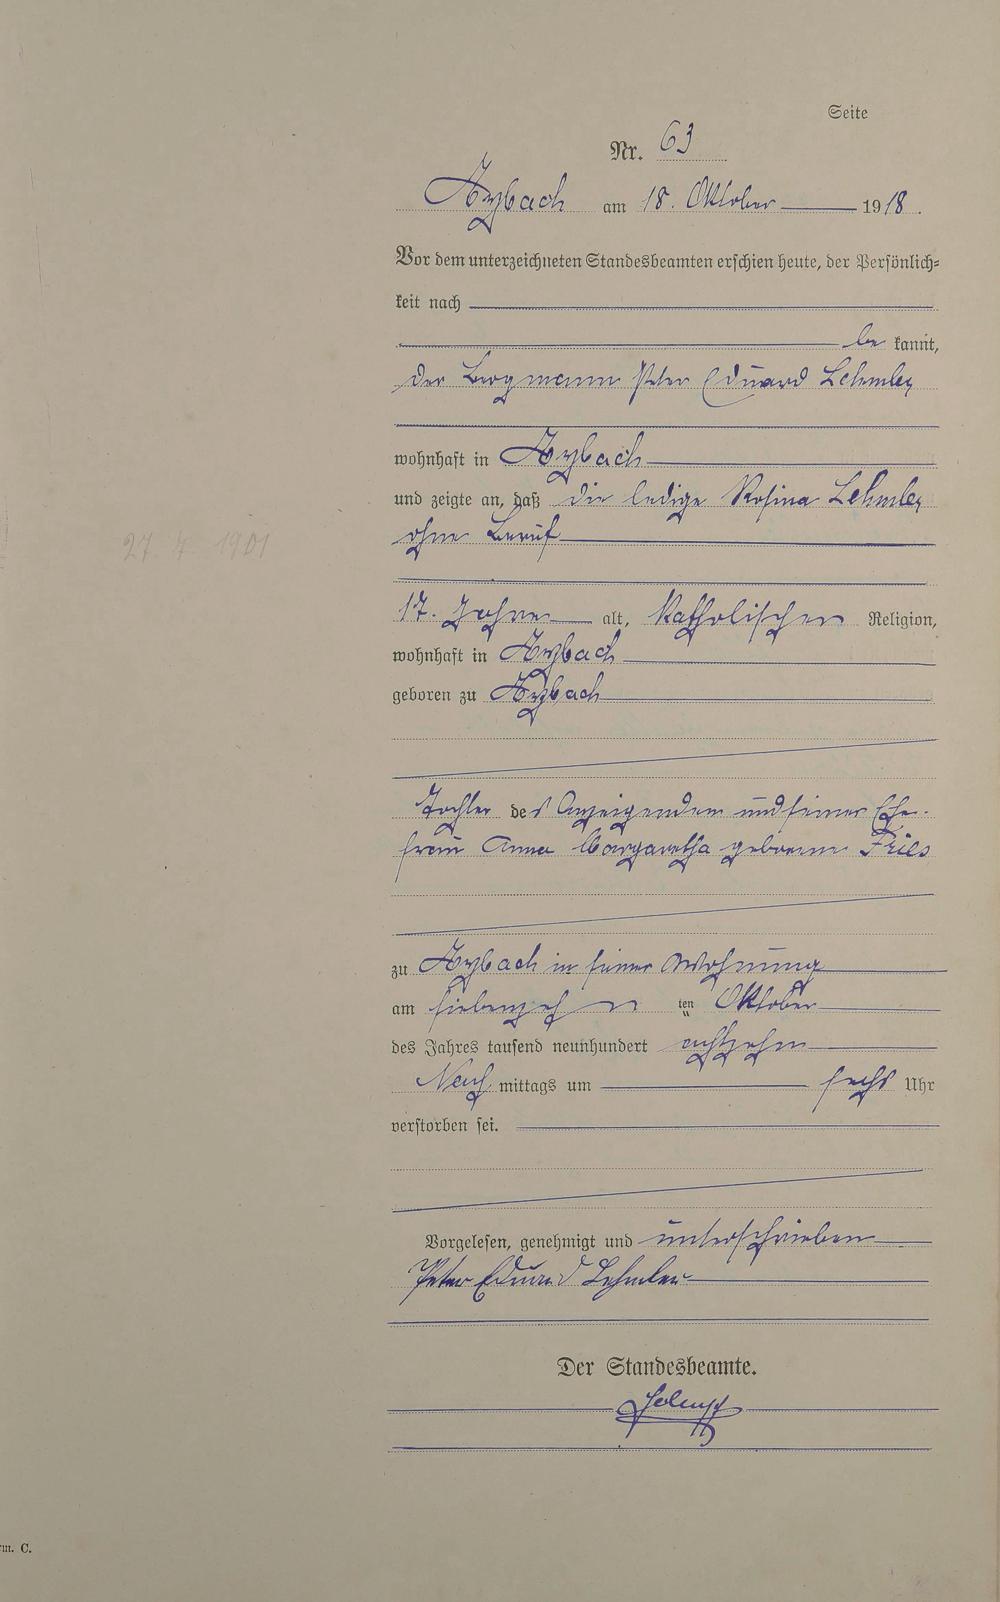 Seite
Nr. 63
Arzbach am 18. Oktober 1918.
Vor dem unterzeichneten Standesbeamten erschien heute, der Persönlich-
keit nach
be kannt,
der Bergmann Peter Eduard Lehmler
wohnhaft in Arzbach
und zeigte an, daß die ledige Rosina Lehmler
ohne Beruf
27 4 1901
17. Jahre alt, Katholischer Religion,
wohnhaft in Arzbach
geboren zu Arzbach
Tochter des Anzeigenden und seiner Ehe-
frau Anna Margaretha geborene Fries
zu Arzbach in seiner Wohnung
am siebenzehn ten Oktober
des Jahres tausend neunhundert achtzehn
Nach mittags um sechs Uhr
verstorben sei.
Vorgelesen, genehmigt und unterschrieben
Peter Eduard Lehmler
Der Standesbeamte.
rm. C.